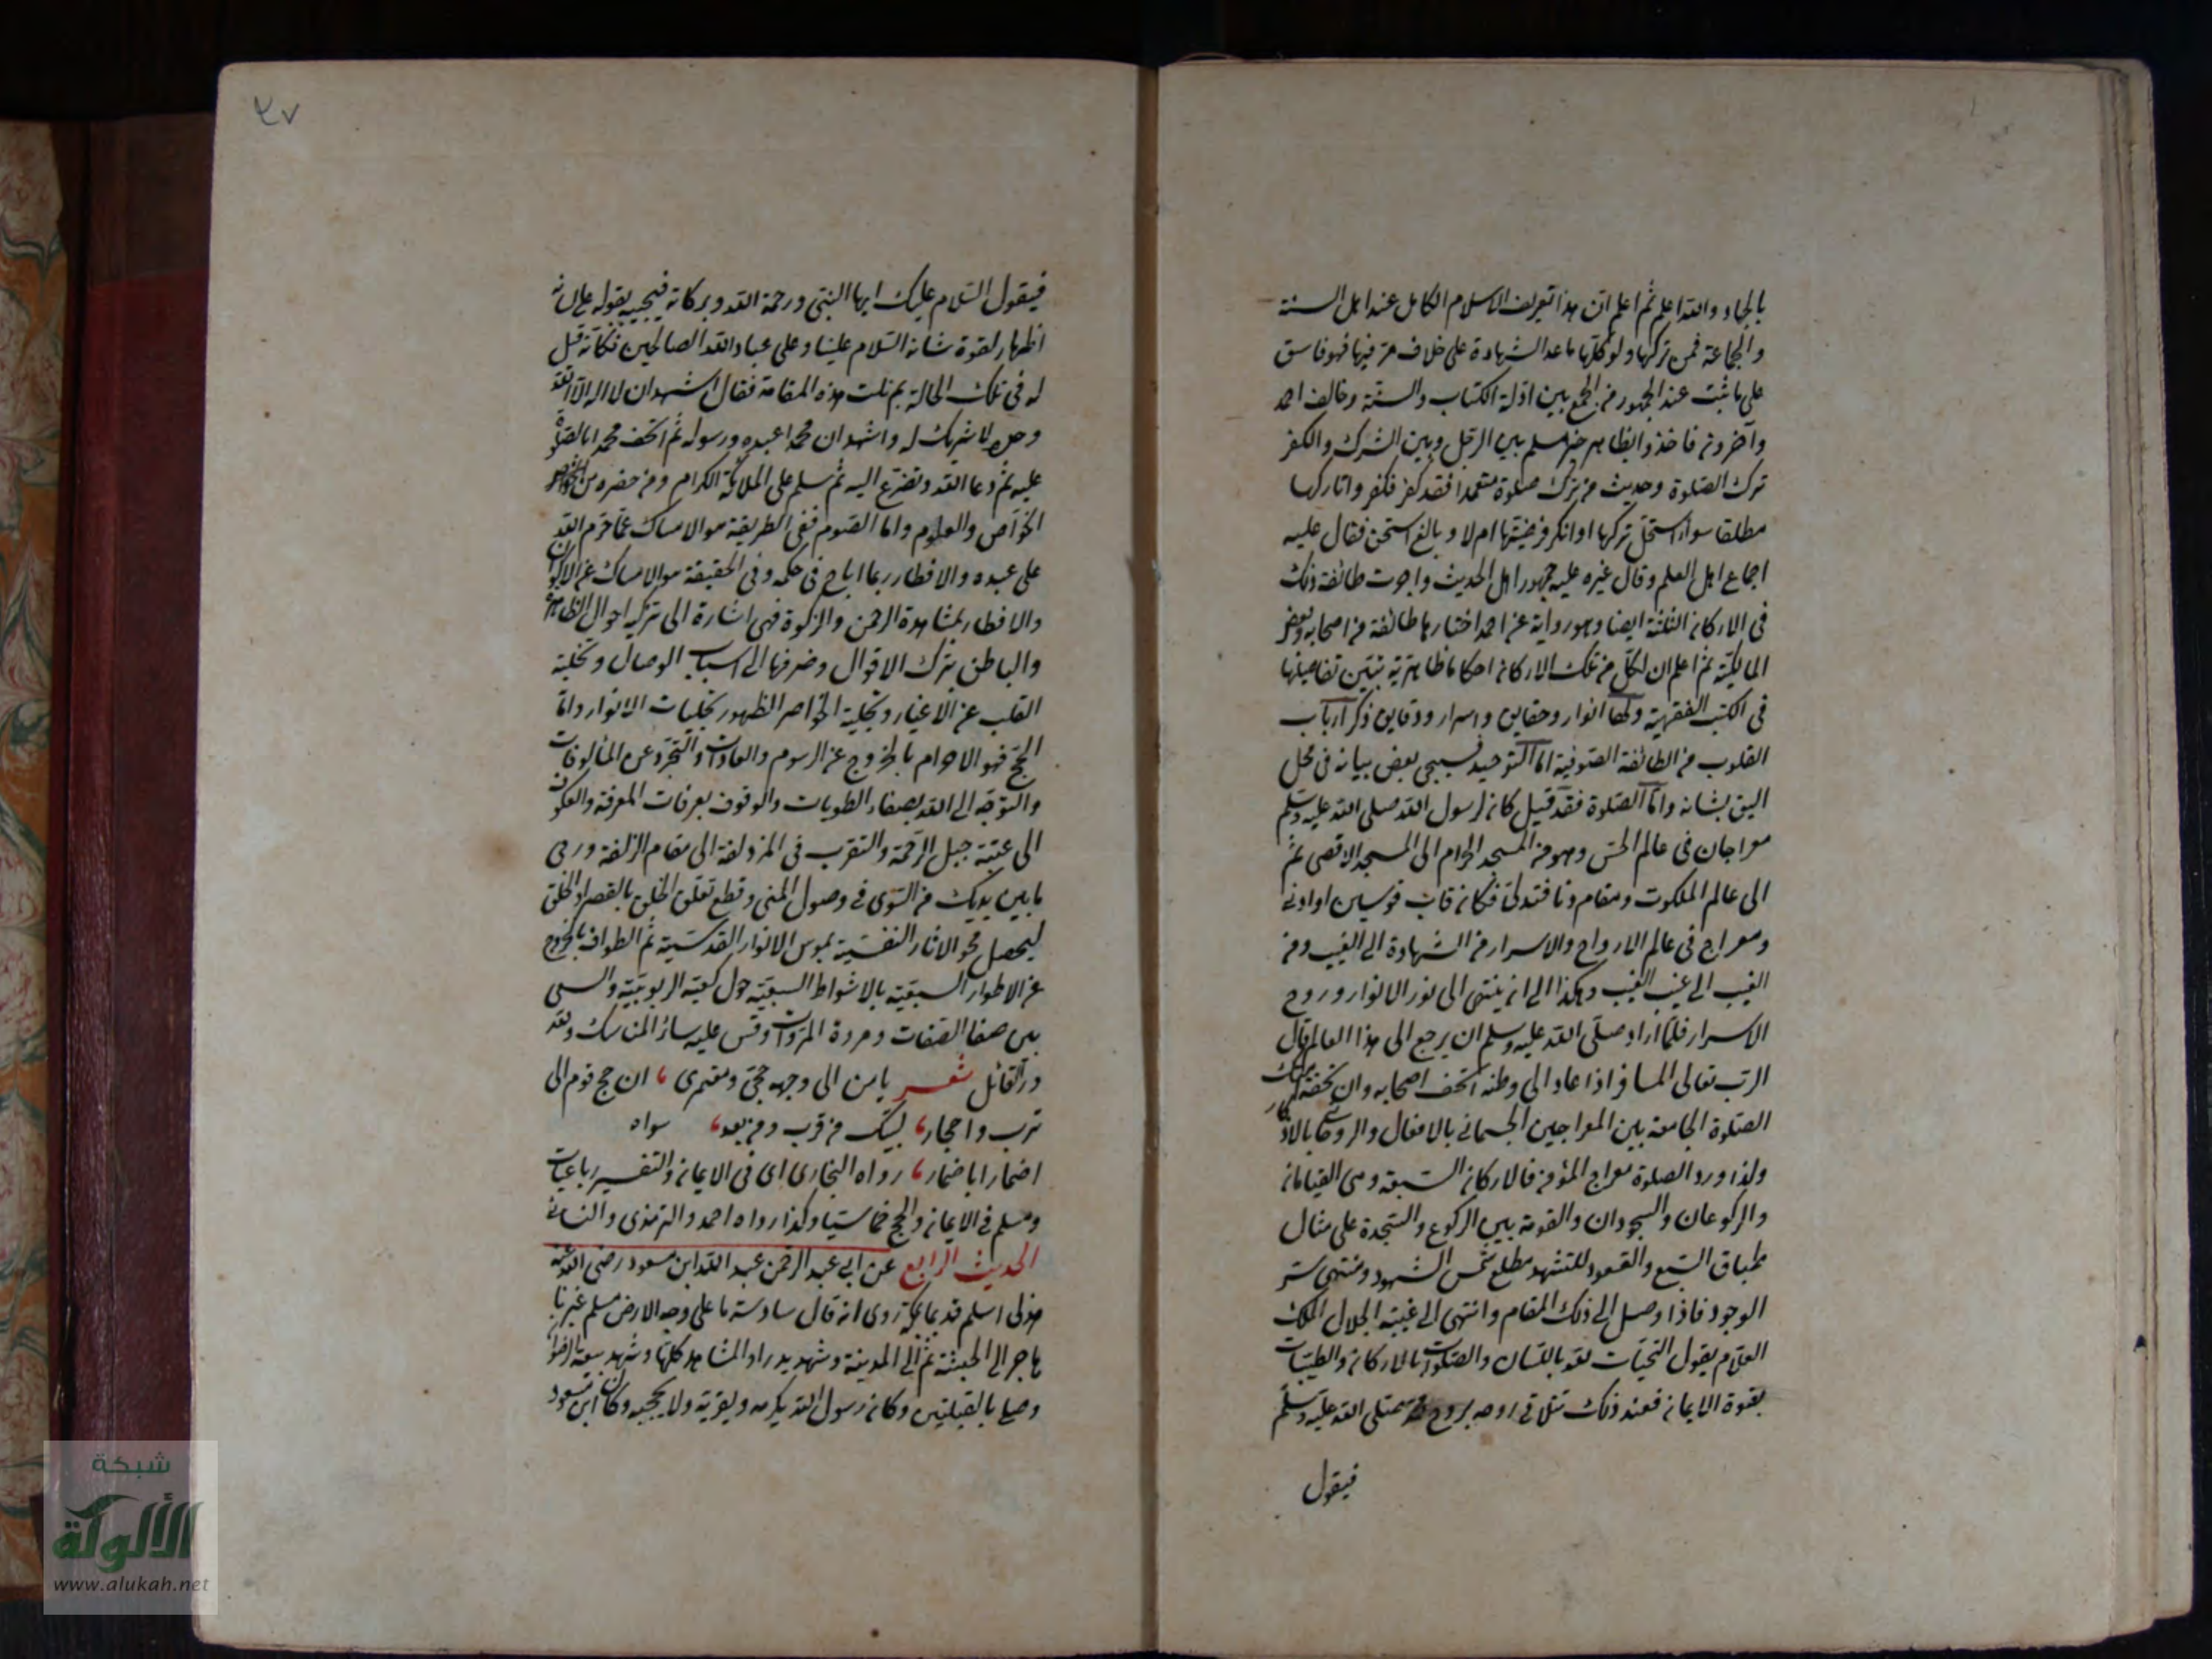 بالجهاد والله اعلم ثم اعلم ان هذا تعريف الاسلام الكامل عند اهل السنة
والجماعة فمن تركها ولو كلها ما عدا الشهادة على خلاف مر فيها فهو فاسق
على ما ثبت عند الجمهور من الجمع بين ادلة الكتاب والسنة وخالف احمد
وآخرون فاخذوا بظاهر خبر مسلم بين الرجل وبين الشرك والكفر
ترك الصلوة وحديث من ترك صلوة متعمدا فقد كفر فكفروا تاركها
مطلقا سواء استحل تركها او انكر فرضيتها ام لا وبالغ اسحق فقال عليه
اجماع اهل العلم وقال غيره عليه جمهور اهل الحديث واجرت طائفة ذلك
في الاركان الثلثة ايضا وهو رواية عن احمد اختارها طائفة من اصحابه وبعض
المالكية ثم اعلم ان لكل من تلك الاركان احكاما ظاهرية تبين تفاصيلها
في الكتب الفقهية ولها انوار وحقايق واسرار ودقايق ذكر ارباب
القلوب من الطائفة الصوفية اما التوحيد فسيجي بعض بيانه في محل
اليق بشانه واما الصلوة فقد قيل كان لرسول الله صلى الله عليه وسلم
معراجان في عالم الحس وهو من المسجد الحرام الى المسجد الاقصى ثم
الى عالم الملكوت ومقام دنا فتدلى فكان قاب قوسين او ادنى
ومعراج في عالم الارواح والاسرار من الشهادة الى الغيب ومن
الغيب الى غيب الغيب وهكذا الى ان ينتهى الى نور الانوار وروح
الاسرار فلما اراد صلى الله عليه وسلم ان يرجع الى هذا العالم قال
الرب تعالى المسافر اذا عاد الى وطنه اتحف اصحابه وان تحفة امتك
الصلوة الجامعة بين المعراجين الجسماني بالافعال والروحاني بالاذكار
ولذا ورد الصلوة معراج المؤمن فالاركان السبعة وهي القيامان
والركوعان والسجودان والقومة بين الركوع والسجدة على مثال
طباق السبع والقعود للتشهد مطلع شمس الشهود ومنتهى ستر
الوجود فاذا وصل الى ذلك المقام وانتهى الى غيبة الجلال الملك
العلام يقول التحيات لله باللسان والصلوات بالاركان والطيبات
بقوة الايمان فعند ذلك تتلاقى روحه بروح محمد صلى الله عليه وسلم
فيقول
٤٧
فيقول السلام عليك ايها النبي ورحمة الله وبركاته فيجيبه بقوله على لسانه
اظهارا لقوة شانه السلام علينا وعلى عباد الله الصالحين فكانه قيل
له في تلك الحالة بم نلت هذه المقامة فقال اشهد ان لا اله الا الله
وحده لا شريك له واشهد ان محمدا عبده ورسوله ثم اتحف محمدا بالصلوة
عليه ثم دعا الله وتضرع اليه ثم سلم على الملائكة الكرام ومن حضره من
الخواص والعوام واما الصوم ففي الطريقة هو الامساك عما حرم الله
على عبده والافطار بما اباح في حكمه وفي الحقيقة هو الامساك عن الاكوان
والافطار بمشاهدة الرحمن والزكوة فهي اشارة الى تزكية احوال الظاهر
والباطن بترك الاقوال وصرفها الى اسباب الوصال وتخلية
القلب عن الاغيار وتجلية الخواص لظهور تجليات الانوار واما
الحج فهو الاحرام بالخروج عن الرسوم والعادات والتجرد عن المألوفات
والتوجه الى الله بصفاء الطويات والوقوف بعرفات المعرفة والعكوف
الى عتبة جبل الرحمة والتقرب في المزدلفة الى مقام الزلفة ورمي
ما بين يديك من السوى في وصول المنى وقطع تعلق الخلق بالقصر او الحلق
ليحصل محو الاثار النفسية بموس الانوار القدسية ثم الطواف بالخروج
عن الاطوار السبعية بالاشواط السبعية حول كعبة الربوبية والسعي
بين صفا الصفات ومروة المروات وقس عليه سائر المناسك ولله
در القائل شعر يا من الى وجهه حجي ومعتمري ، ان حج قوم الى
ترب واحجار ، لبيك من قرب ومن بعد ، سواه
اضمارا باضمار ، رواه البخاري اى في الايمان والتفسير رباعيات
ومسلم في الايمان والحج خماسيا وكذا رواه احمد والترمذي والنسائي
الحديث الرابع عن ابي عبد الرحمن عبد الله ابن مسعود رضى الله عنه
هذلي اسلم قديما بمكة روى انه قال سادسة ما على وجه الارض مسلم غيرنا
هاجر الى الحبشة ثم الى المدينة وشهد بدرا والمشاهد كلها وشهد بيعة الرضوان
وصلى بالقبلتين وكان رسول الله يكرمه ويقربه ولا يحجبه وكان ابن مسعود
شبكة
الألوكة
www.alukah.net